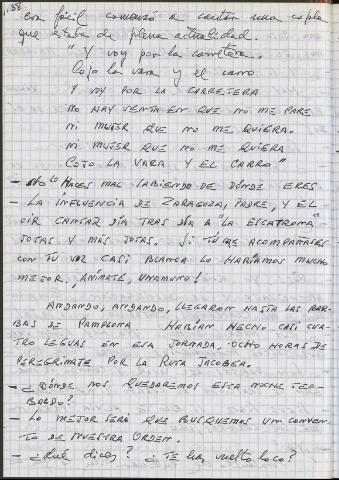 138
era fácil comenzó a cantar una copla
que estaba de plena actualidad.
"Y voy por la carretera.
Cojo la vara y el carro
Y VOY POR LA CARRETERA
NO HAY VENTA EN QUE NO ME PARE
NI MUJER QUE NO ME QUIERA.
NI MUJER QUE NO ME QUIERA
COJO LA VARA Y EL CARRO."
- NO LO HACES MAL SABIENDO DE DÓNDE ERES
- LA INFLUENCIA DE ZARAGOZA, PADRE, Y EL
OIR CANTAR DÍA TRAS DÍA A "LA ESCATRONA"
JOTAS Y MÁS JOTAS. SI TÚ ME ACOMPAÑASES
CON TU VOZ CASI BLANCA LO HARÍAMOS MUCHO
MEJOR. ¡ANÍMATE, UNAMUNO!
ANDANDO, ANDANDO, LLEGARON HASTA LAS BAR-
BAS DE PAMPLONA. HABÍAN HECHO CASI CUA-
TRO LEGUAS EN ESA JORNADA. OCHO HORAS DE
PEREGRINAJE POR LA RUTA JACOBEA.
- ¿DÓNDE NOS QUEDAREMOS ESTA NOCHE TEO-
BALDO?
- LO MEJOR SERÁ QUE BUSQUEMOS UN CONVEN-
TO DE NUESTRA ORDEN.
- ¿Qué dices? ¿Te has vuelto loco?